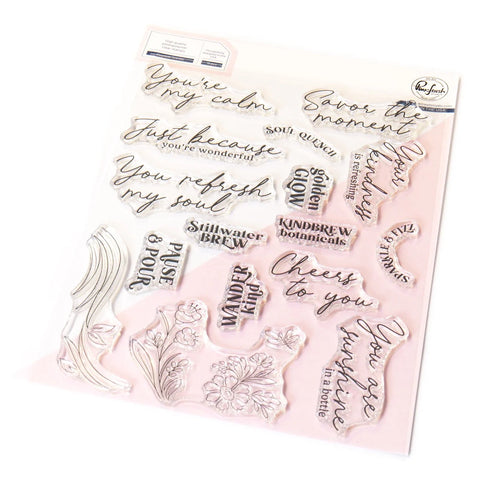 Pinkfresh
You're
my calm
Savor the
moment
Just because
you're wonderful
SOUL QUENCH
Your
kindness
is refreshing
You refresh
my soul
golden
GLOW
Stillwater
BREW
KINDBREW
botanicals
SPARKLE & FIZZ
PAUSE
& POUR
pink
WANDER
Cheers
to you
You are
sunshine
in a bottle